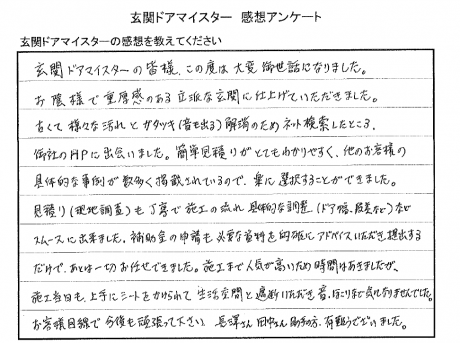 玄関ドアマイスター 感想アンケート
玄関ドアマイスターの感想を教えてください
玄関ドアマイスターの皆様、この度は大変御世話になりました。
お陰様で重厚感のある立派な玄関に仕上げていただきました。
古くて様々な汚れとガタツキ(音も出る)解消のためネット検索したところ、
御社のHPに出会いました。簡単見積りがとてもわかりやすく、他のお客様の
具体的な事例が数多く掲載されているので、楽に選択することができました。
見積り(現地調査)も丁寧で施工の流れ、具体的な調整(ドア、段差など)など
スムーズに出来ました。補助金の申請も必要な資料を的確にアドバイスいただき、提出する
だけで、あとは一切お任せできました。施工まで人気が高いため時間はあきましたが、
施工当日も、上手にシートをかけられて生活空間と遮断いただき音、ほこりなど気になりませんでした。
お客様目線で今後も頑張って下さい。長澤さん 田中さん 有難うございました。